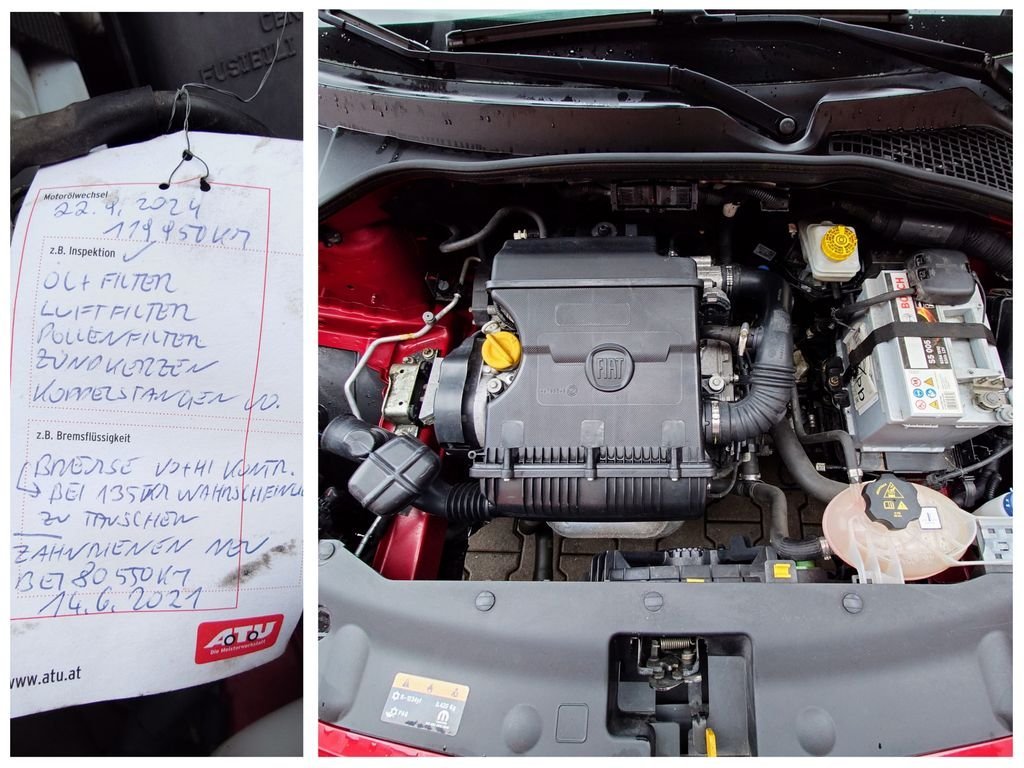 FUSIBILI
Motorölwechsel
22.4.2024
119950KM
z.B. Inspektion
ÖL+FILTER
LUFTFILTER
POLLENFILTER
ZÜNDKERZEN
KOPPELSTANGEN VO.
z.B. Bremsflüssigkeit
BREMSE VO+HI KONTR.
BEI 135TKM
ZU TAUSCHEN
ZAHNRIEMEN NEU
BEI 80550KM
14.6.2021
ATU
Die Meisterwerkstatt
www.atu.at
FIAT
BOSCH
S5 005
R-1234yf
0.425 Kg
PAG